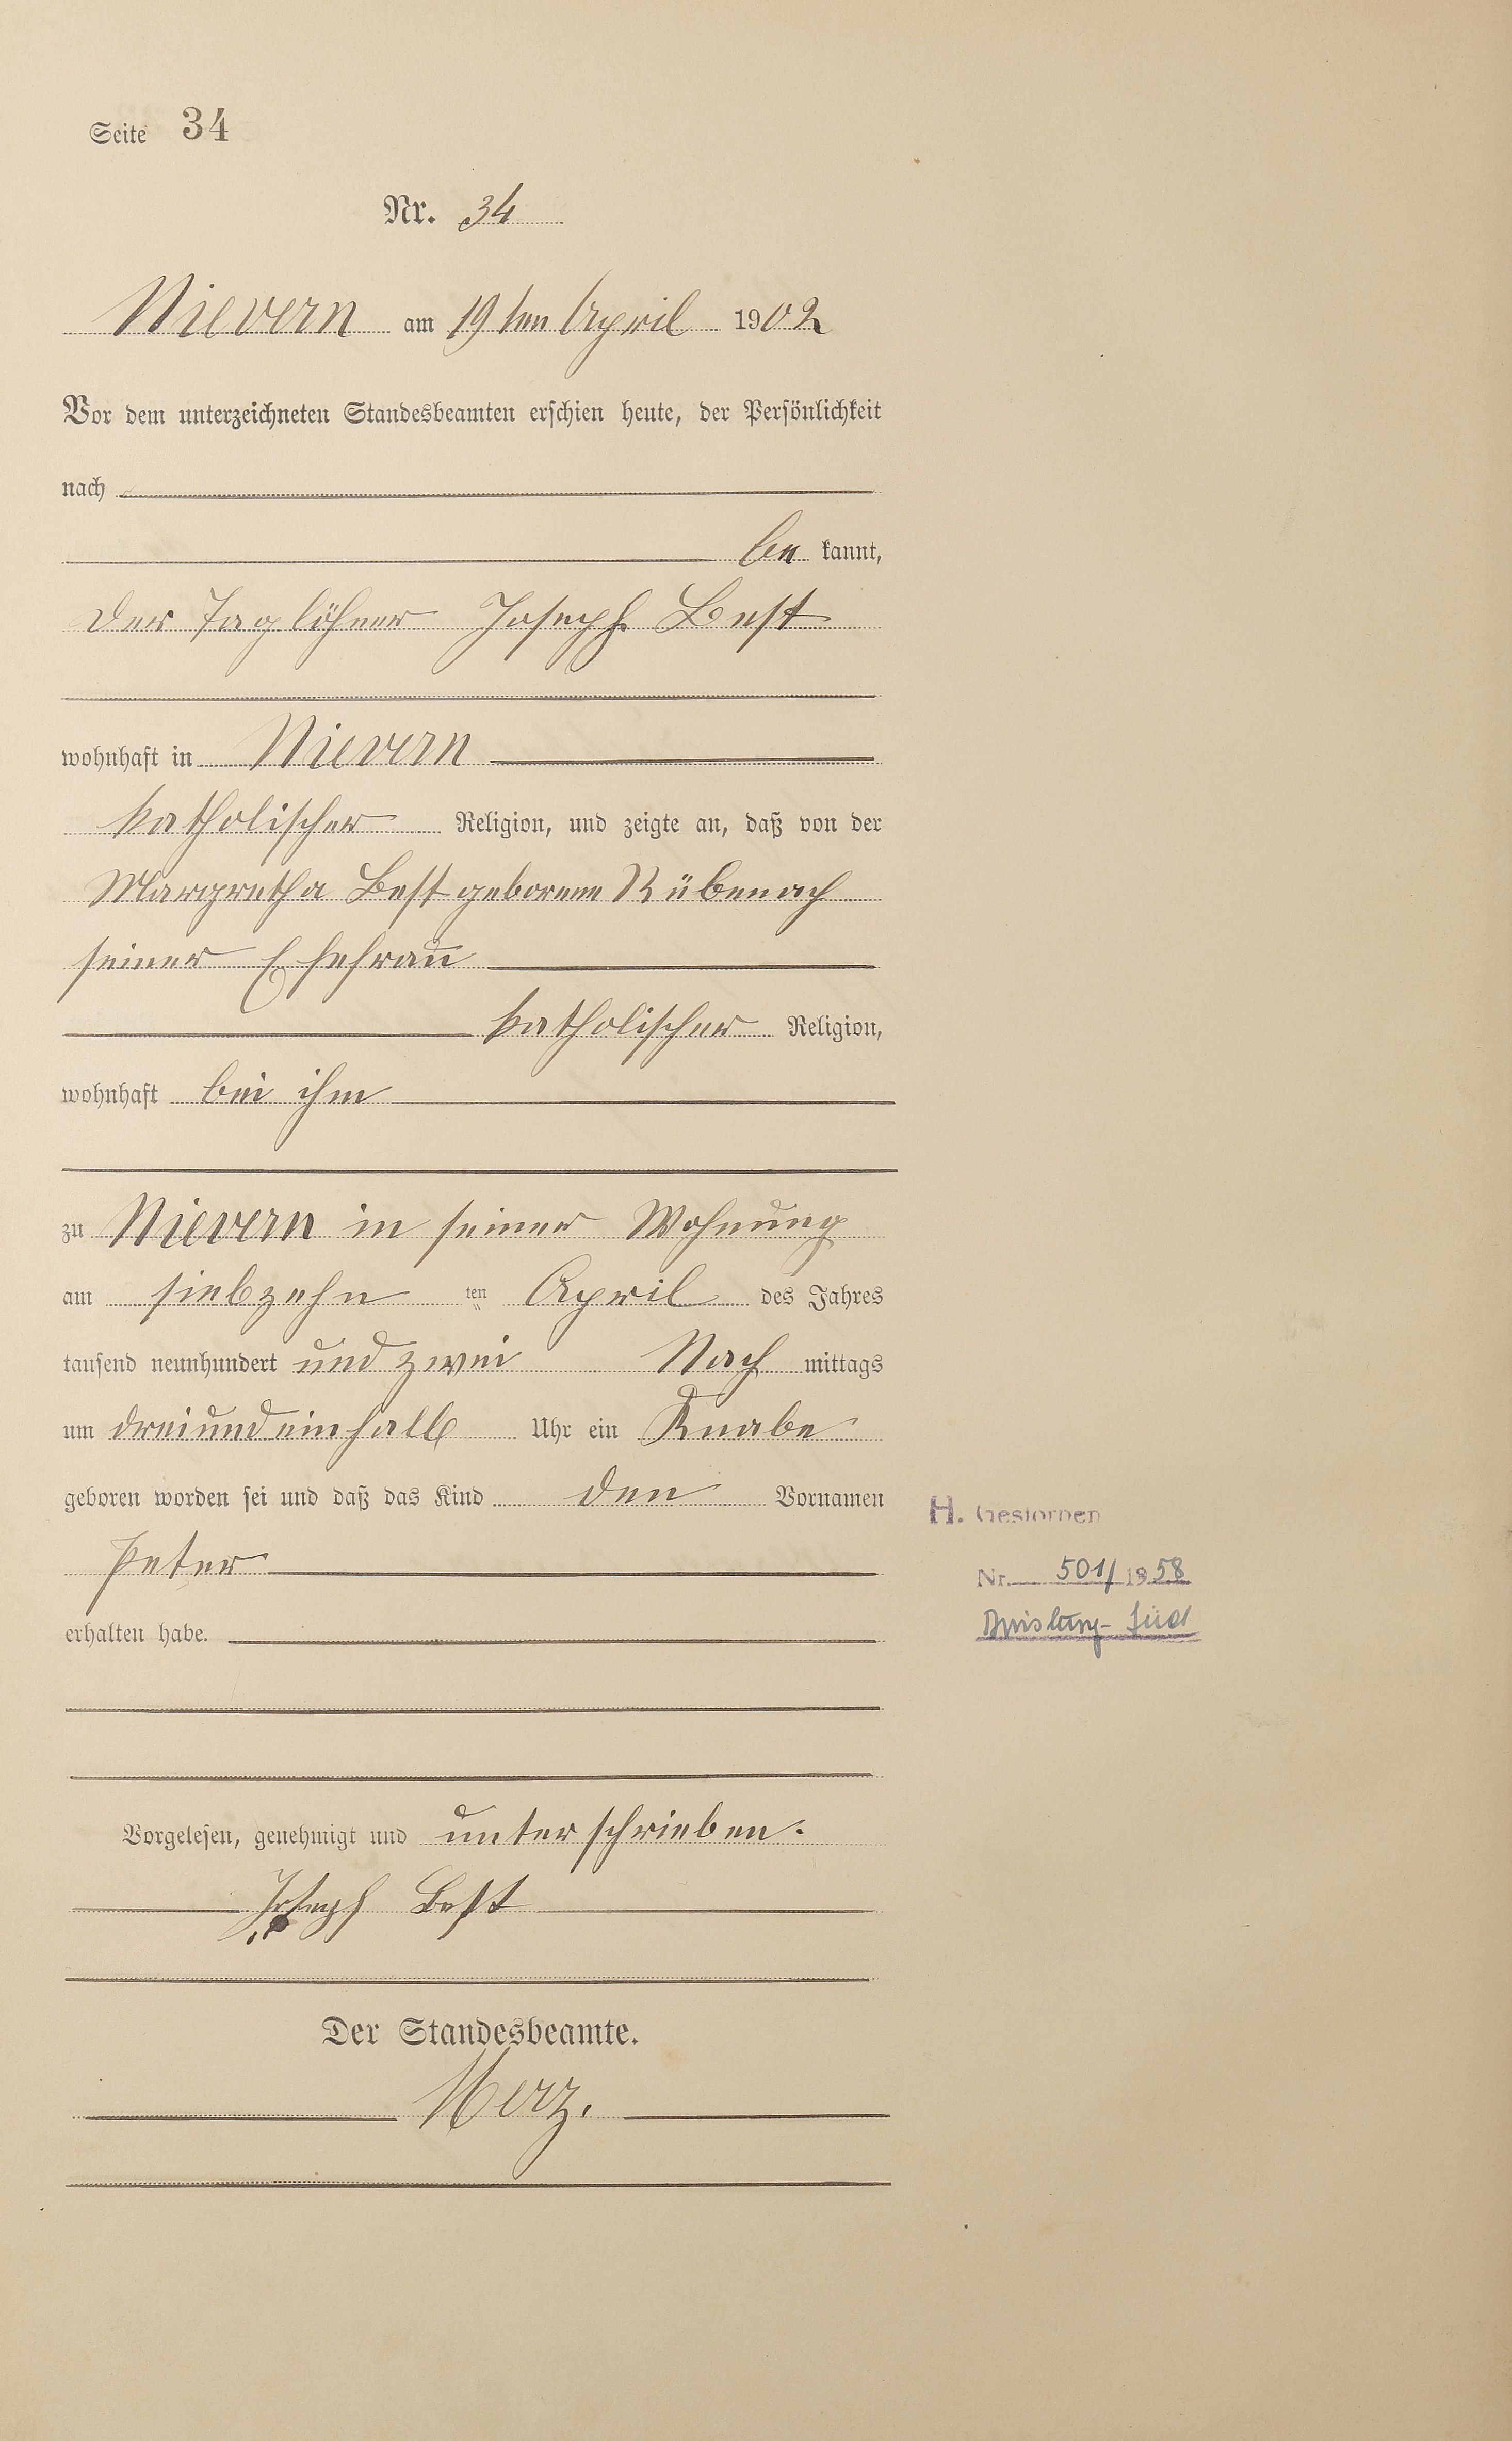 Seite 34
Nr. 34
Nievern am 19ten April 1902
Vor dem unterzeichneten Standesbeamten erschien heute, der Persönlichkeit
nach
be kannt,
der Taglöhner Joseph Best
wohnhaft in Nievern
katholischer Religion, und zeigte an, daß von der
Margretha Best geborene Rübenach
seiner Ehefrau
katholischer Religion,
wohnhaft bei ihm
zu Nievern in seiner Wohnung
am siebzehn ten April des Jahres
tausend neunhundert und zwei Nach mittags
um dreiundeinhalb Uhr ein Knabe
geboren worden sei und daß das Kind den Vornamen
Peter
erhalten habe.
H. Gestorben
Nr. 501/1958
Duisburg-Süd
Vorgelesen, genehmigt und unterschrieben.
Joseph Best
Der Standesbeamte.
Merz.